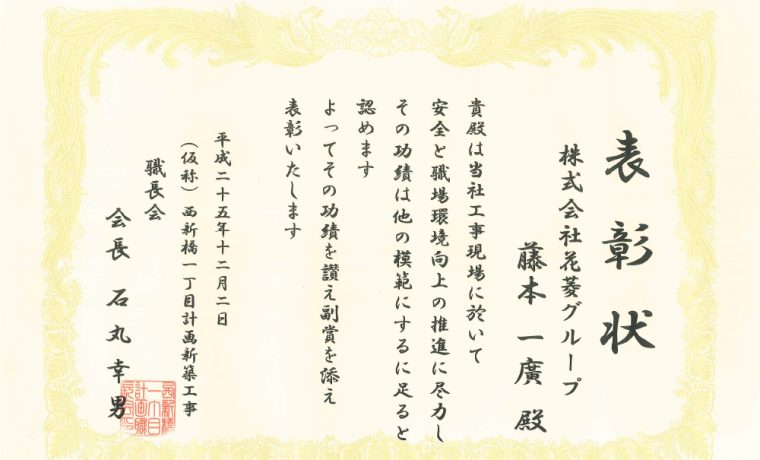 表彰状
株式会社花菱グループ
藤本一廣殿
貴殿は当社工事現場に於いて
安全と職場環境向上の推進に尽力し
その功績は他の模範にするに足ると
認めます
よってその功績を讃え副賞を添え
表彰いたします
平成二十五年十二月二日
(仮称)西新橋一丁目計画新築工事
職長会
会長 石丸幸男
西新橋
一丁目
計画職
長会印